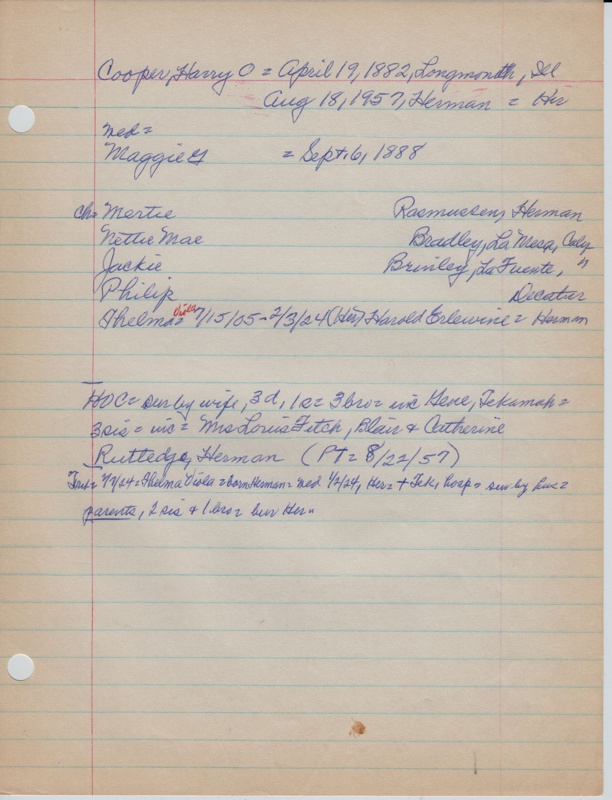 Cooper, Harry O = April 19, 1882, Longmonth, Ill
Aug 18, 1957, Herman = Her
med =
Maggie G = Sept. 6, 1888
ch = Mertie Rasmussen, Herman
Nettie Mae Bradley, La Mesa, Caly
Jackie Brinley, La Fuente, "
Philip Decatur
Thelma Viola = 7/15/05 - 2/3/24 (Her) Harold Erlewine = Herman
HOC = sur by wife, 3 d, 1 s = 3 bro = inc Gene, Tekamah =
3 sis = inc = Mrs Louis Fitch, Blair & Catherine
Rutledge, Herman (PT = 8/22/57)
Thelma Viola = born Herman = med 1/2/24, Her = + Tek, hosp = sur by hus =
parents, 2 sis & 1 bro = bur Her =